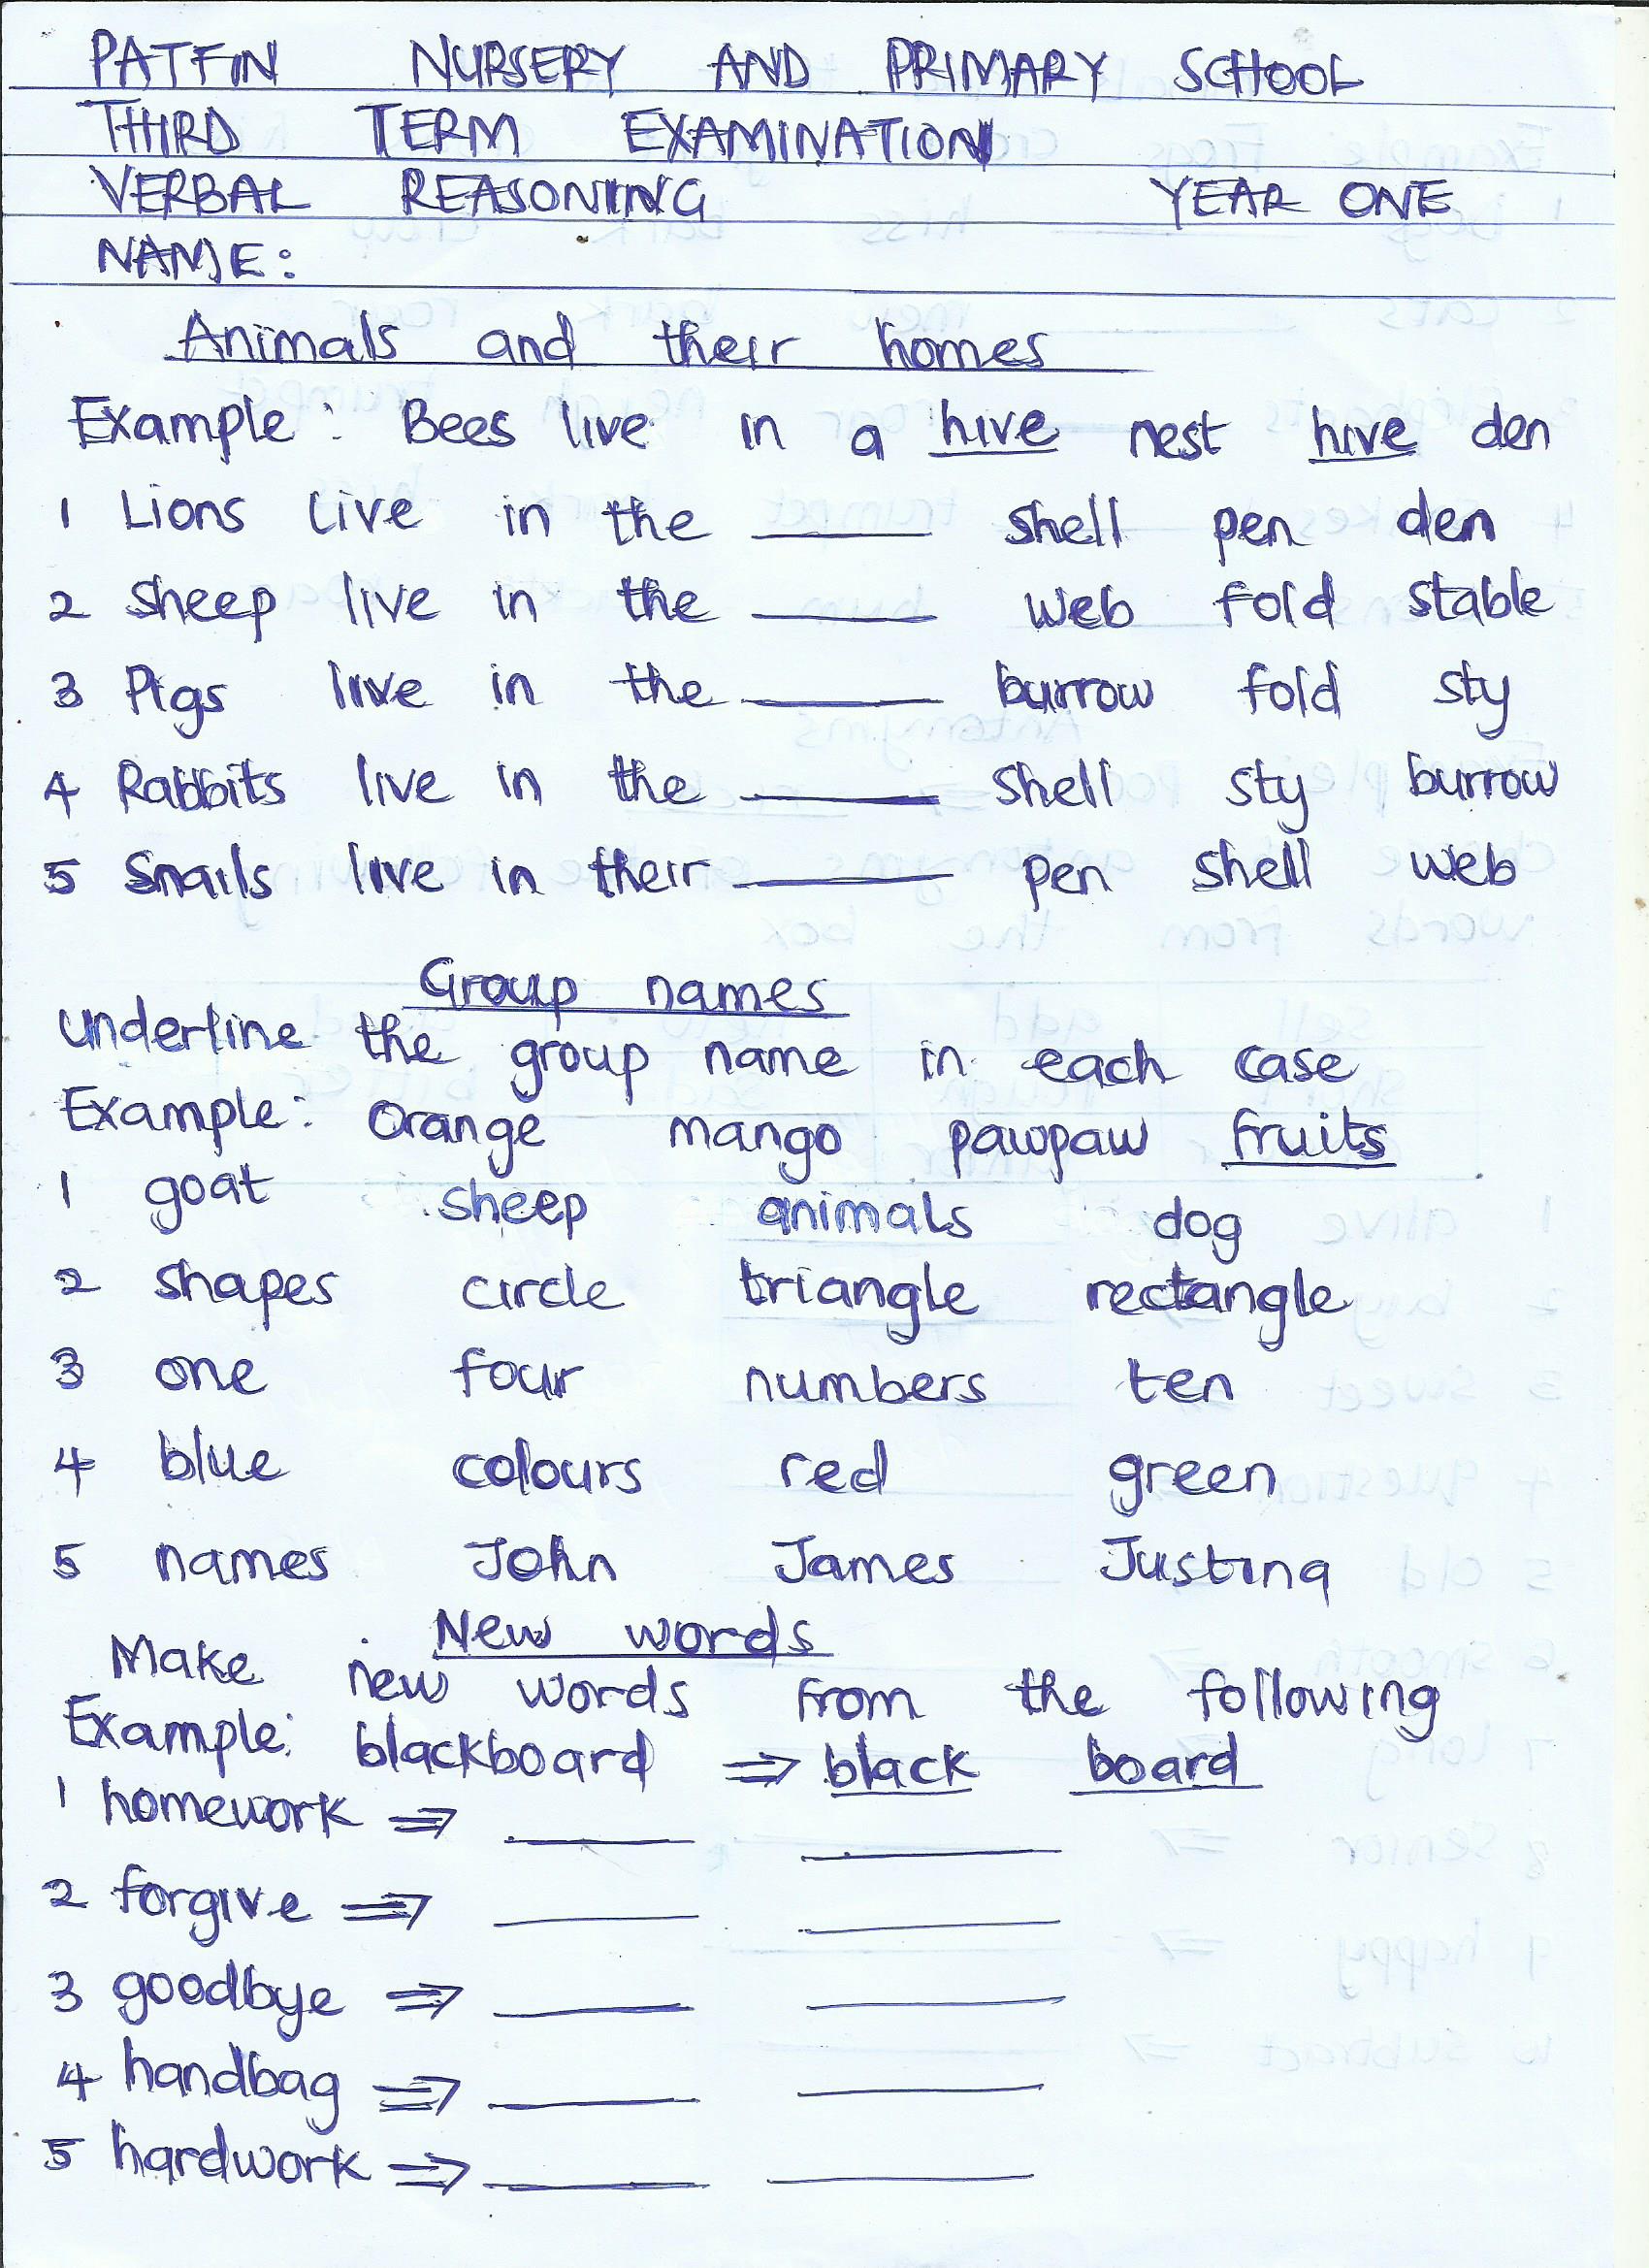 PATFIN NURSERY AND PRIMARY SCHOOL
THIRD TERM EXAMINATION
VERBAL REASONING YEAR ONE
NAME:
Animals and their homes
Example: Bees live in a hive nest hive den
1 Lions live in the ____ shell pen den
2 Sheep live in the ____ web fold stable
3 Pigs live in the ____ burrow fold sty
4 Rabbits live in the ____ shell sty burrow
5 Snails live in their ____ pen shell web
Group names
underline the group name in each case
Example: Orange mango pawpaw fruits
1 goat sheep animals dog
2 shapes circle triangle rectangle
3 one four numbers ten
4 blue colours red green
5 names John James Justina
New words
Make new words from the following
Example: blackboard ⇒ black board
1 homework ⇒ ____ ____
2 forgive ⇒ ____ ____
3 goodbye ⇒ ____ ____
4 handbag ⇒ ____ ____
5 hardwork ⇒ ____ ____